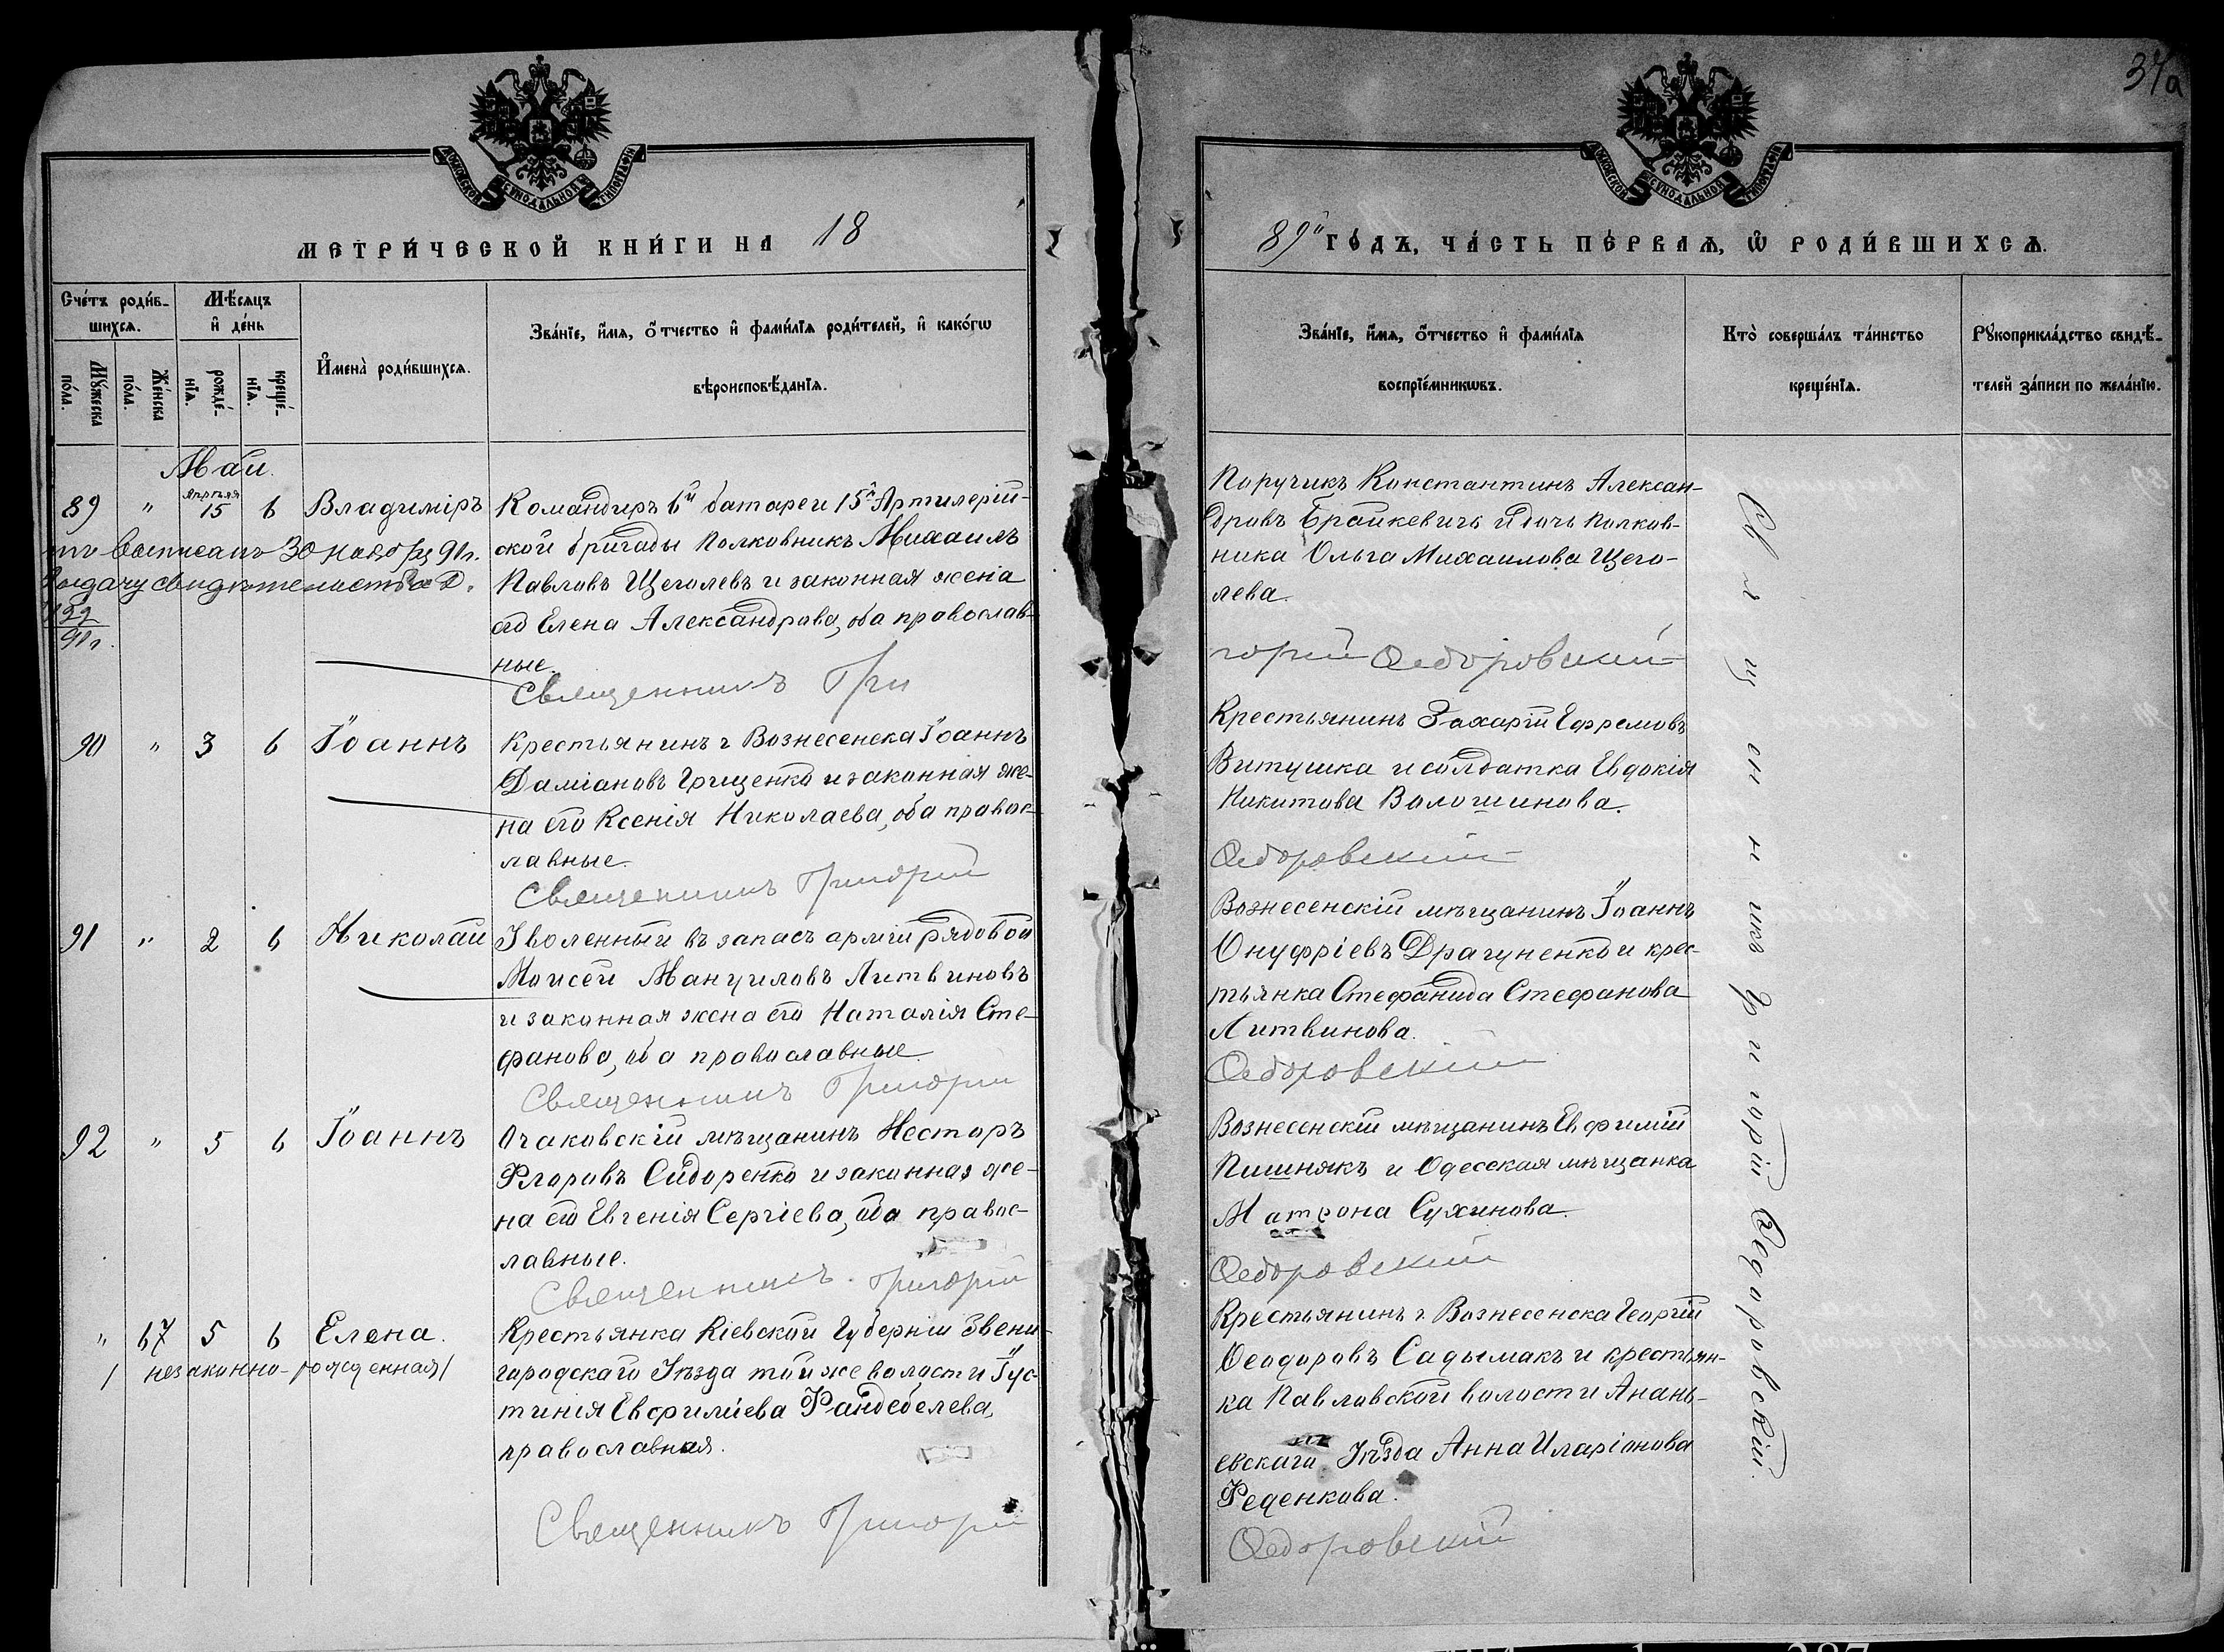 37а
МОСКОВСКОЙ СУНОДАЛЬНОЙ ТИПОГРАФІИ
МОСКОВСКОЙ СУНОДАЛЬНОЙ ТИПОГРАФІИ
МЕТРИ́ЧЕСКОЙ КНИ́ГИ НА 18
89й ГО́ДЪ, ЧА́СТЬ ПЕ́РВАѦ, Ѡ҆ РОДИ́ВШИХСѦ.
Сче́тъ роди́в-
шихсѧ.
Мꙋ́жеска
по́ла.
Же́нска
по́ла.
Мѣ́сѧцъ
и҆ де́нь
рожде́-
нїѧ.
креще́-
нїѧ.
И҆мена̀ роди́вшихсѧ.
Зва́нїе, и҆́мѧ, ѻ҆́тчество и҆ фами́лїѧ роди́телей, и҆ како́гѡ
вѣроисповѣ́данїѧ.
Зва́нїе, и҆́мѧ, ѻ҆́тчество и҆ фами́лїѧ
воспрїе́мникѡвъ.
Кто̀ соверша́лъ та́инство
креще́нїѧ.
Рꙋкоприкла́дство свидѣ́-
телей за́писи по жела́нїю.
Маи.
89 " Апрѣля 15 6 Владиміръ
Командиръ 6й батареи 15й Артилерій-
ской бригады Полковникъ Михаилъ
Павловъ Щеголевъ и законная жена
его Елена Александрова, оба православ-
ные.
выписанъ 30 нояб р. 91 г.
Выдачу свидѣтельства
91 г.
Священникъ Гри
Поручикъ Константинъ Алексан-
дровъ Брайкевичъ и дочь Полков-
ника Ольга Михаилова Щего-
лева.
горій Ѳедоровскій
90 " 3 6 Іоаннъ
Крестьянинъ г Вознесенска Іоаннъ
Даміановъ Грищенко и законная же-
на его Ксенія Николаева, оба правос-
лавные.
Священникъ Григорій
Крестьянинъ Захарій Ефремовъ
Витушка и солдатка Евдокія
Никитова Волошинова.
Ѳедоровскій
91 " 2 6 Николай
Уволенный въ запасъ арміи рядовой
Моисей Мануиловъ Литвиновъ
и законная жена его Наталія Сте-
фанова, оба православные.
Священникъ Григорій
Вознесенскій мѣщанинъ Іоаннъ
Онуфріевъ Драгуненко и крес-
тьянка Стефанида Стефанова
Литвинова.
Ѳедоровскій
92 " 5 6 Іоаннъ
Очаковскій мѣщанинъ Несторъ
Флоровъ Сидоренко и законная же-
на его Евгенія Сергіева, оба правос-
лавные.
Священникъ Григорій
Вознесенскій мѣщанинъ Евфимій
Пишнякъ и Одесская мѣщанка
Матрона Сухинова.
Ѳедоровскій
" 67 5 6 Елена.
/ незаконно-рожденная/
Крестьянка Кіевской Губерніи Звени-
городскаго Уѣзда той же волости Іус-
тинія Евфиміева Фандебелева,
православная.
Священникъ Григорій
Крестьянинъ г. Вознесенска Георгій
Ѳеодоровъ Садымакъ и крестьян-
ка Павловской волости Анань-
евскаго Уѣзда Анна Иларіонова
Феденкова.
Ѳедоровскій
Священникъ Григорій Ѳедоровскій.